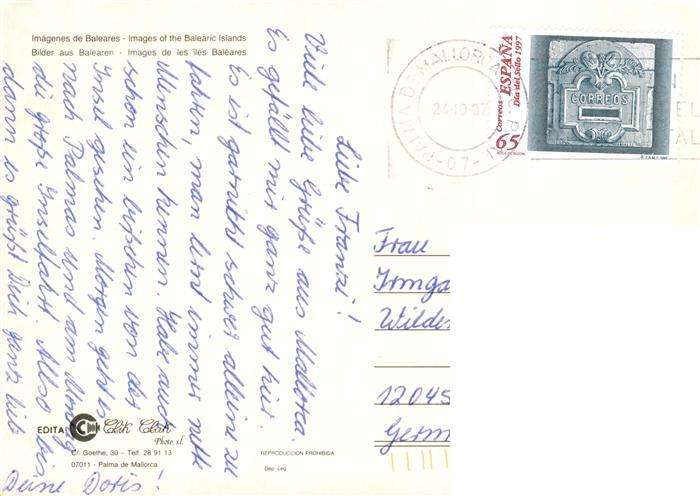 Imágenes de Baleares - Images of the Balearic Islands
Bilder aus Balearen - Images de les îles Baléares
Liebe Franzi!
Viele liebe Grüße aus Mallorca.
Es gefällt mir ganz gut hier.
Es ist garnicht schwer alleine zu
fahren, man lernt immer nette
Menschen kennen. Habe auch
schon ein bißchen von der
Insel gesehen. Morgen geht es
nach Palmas und am
die große Inselfahrt. Also bis
dann es grüßt Dich ganz lieb
Deine Doris!
PALMA DE MALLORCA
24-10-97
-07-
Correos ESPAÑA
Día del Sello 1997
65
CORREOS
Frau
Irmga
Wilde
12045
Germ
EDITA Clik Clak
Photo s.l.
C/. Goethe, 30 - Telf. 28 91 13
07011 - Palma de Mallorca
REPRODUCCION PROHIBIDA
Dep. Leg.